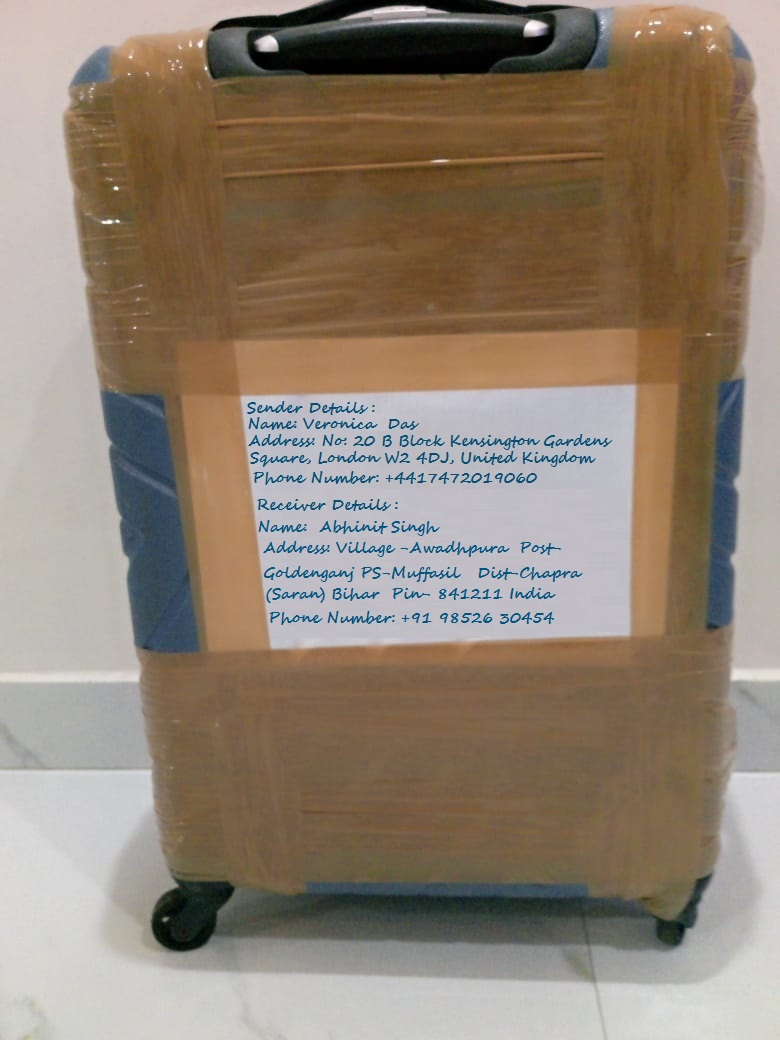 Sender Details :
Name: Veronica Das
Address: No: 20 B Block Kensington Gardens
Square, London W2 4DJ, United Kingdom
Phone Number: +4417472019060
Receiver Details :
Name: Abhinit Singh
Address: Village -Awadhpura Post-
Goldenganj PS-Muffasil Dist-Chapra
(Saran) Bihar Pin- 841211 India
Phone Number: +91 98526 30454